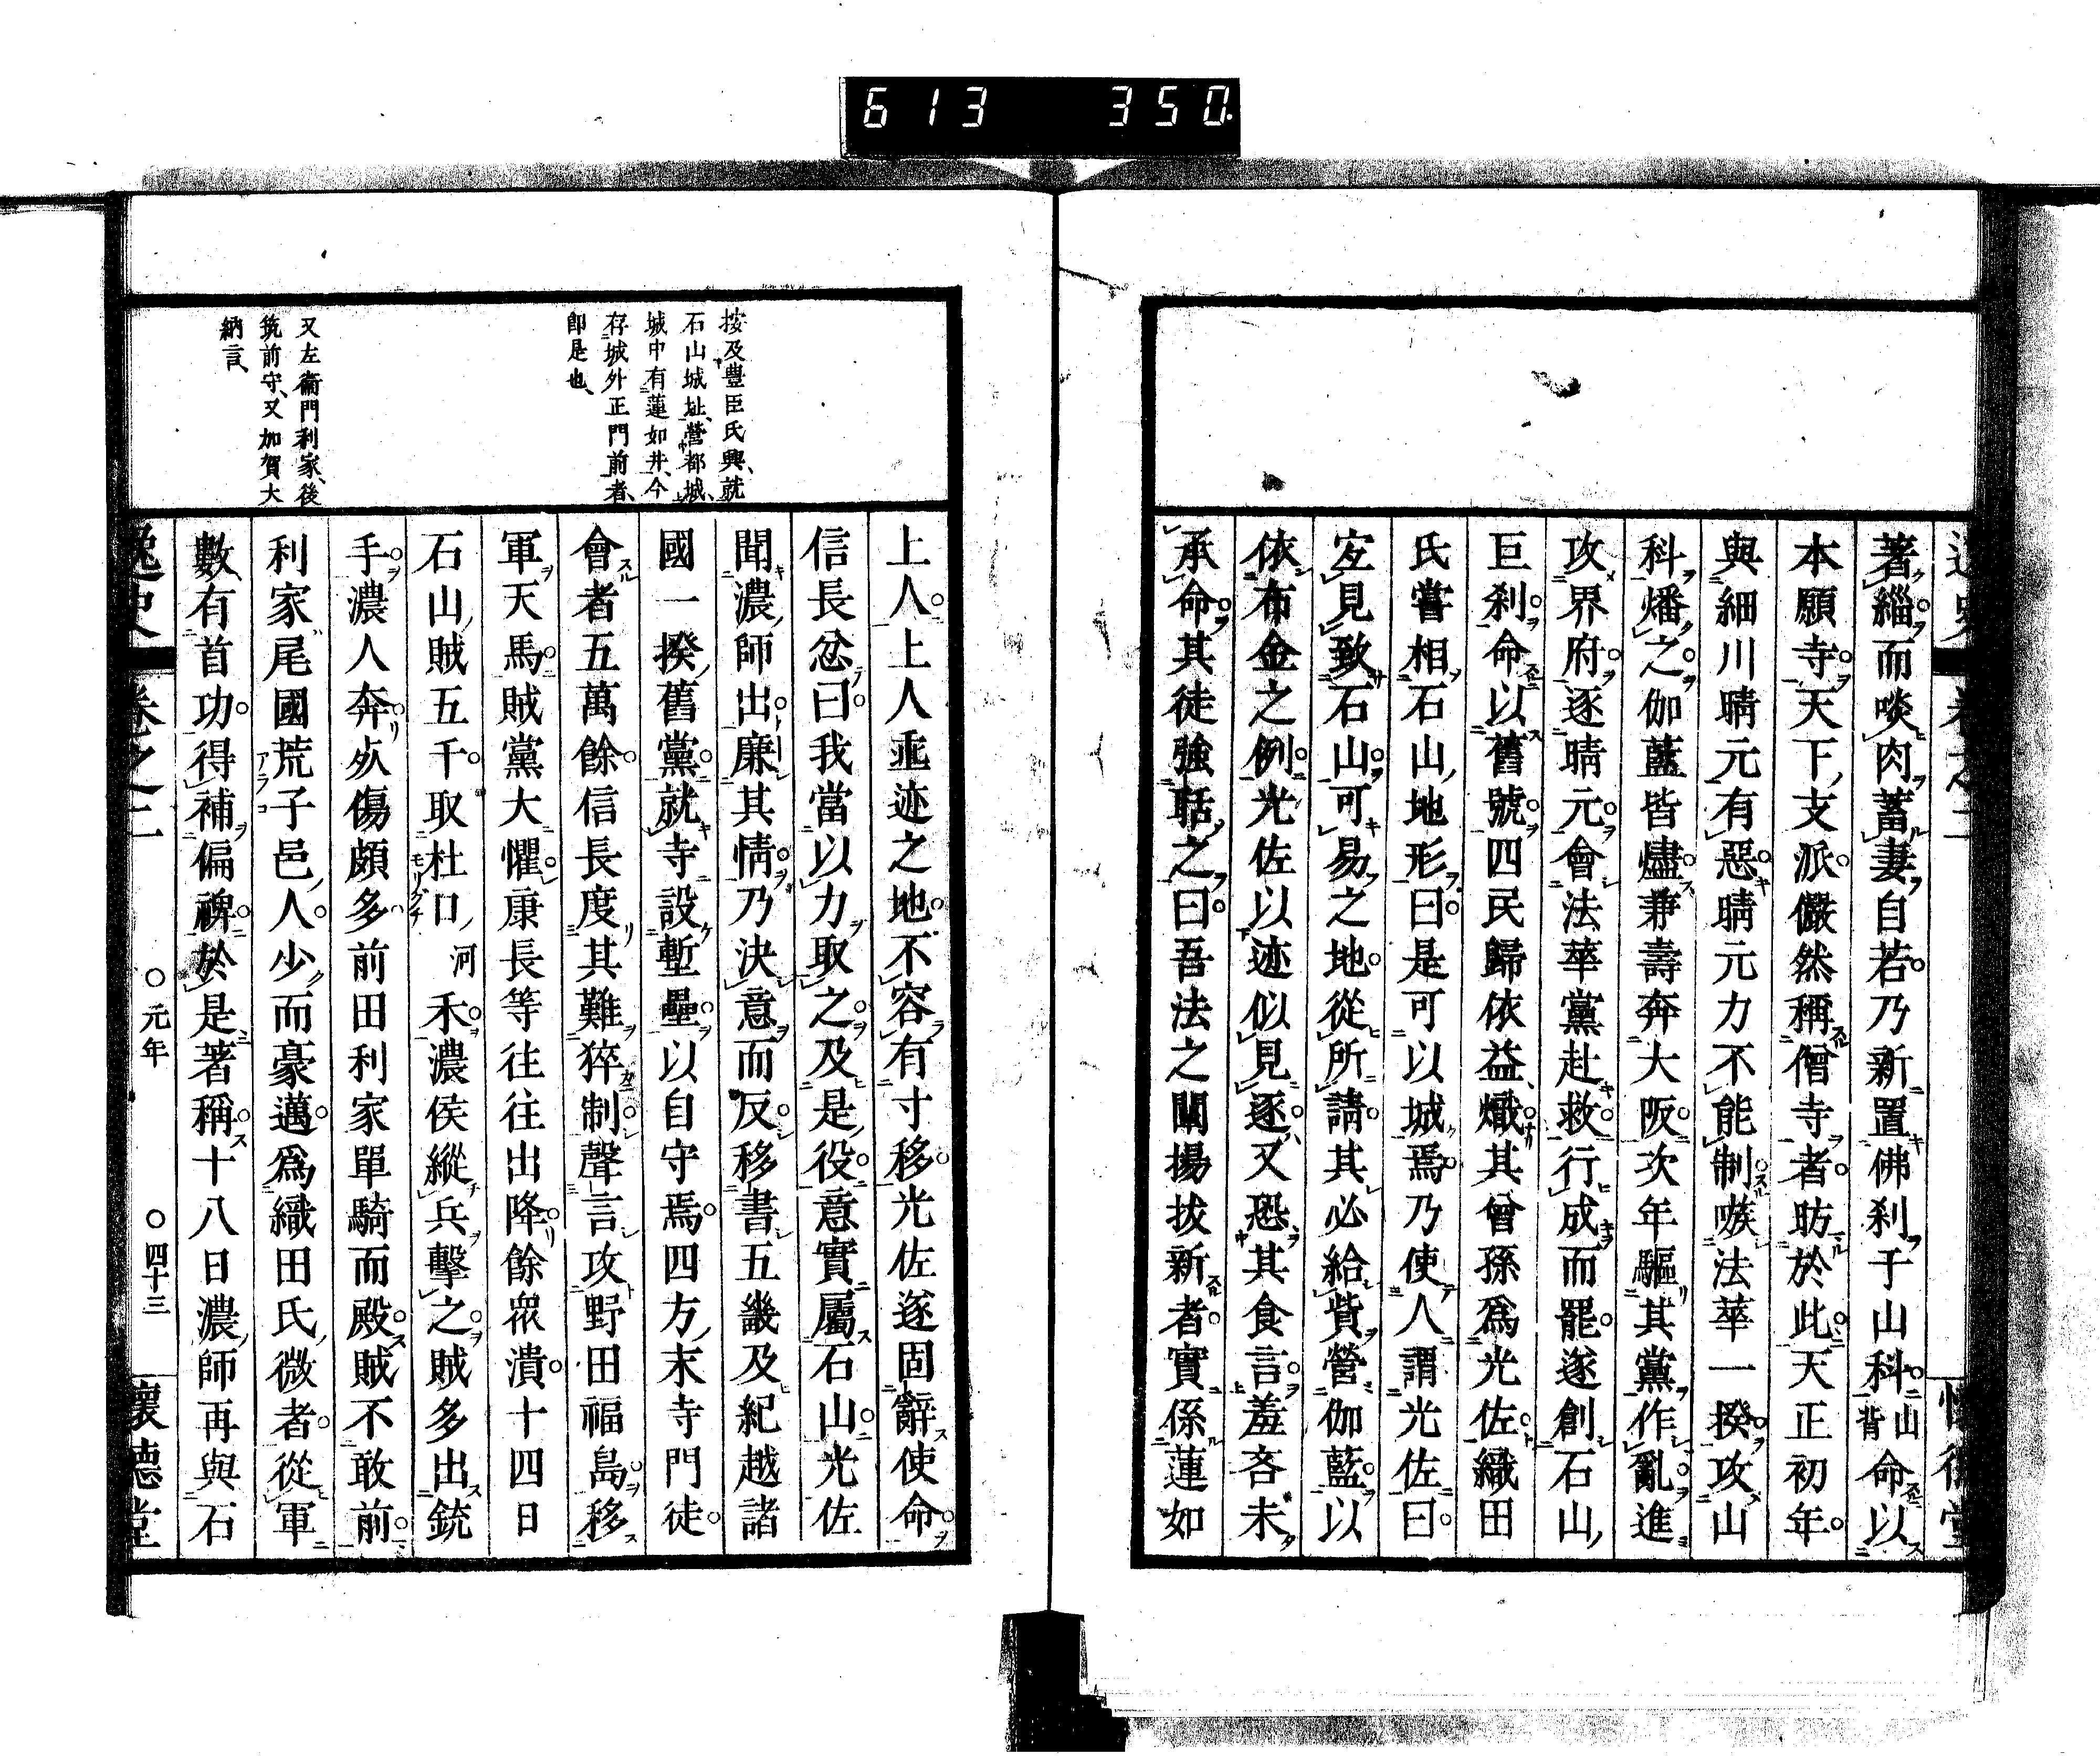 613 350
著緇而啖肉蓄妻自若乃新置佛刹于山科山背命以
本願寺天下支派儼然稱僧寺者昉於此天正初年
與細川晴元有惡晴元力不能制嗾法華一揆攻山
科燔之伽藍皆燼兼壽奔大阪次年驅其黨作亂進
攻界府逐晴元會法華黨赴救行成而罷遂創石山
巨刹命以舊號四民歸依益熾其曾孫爲光佐織田
氏嘗相石山地形曰是可以城焉乃使人謂光佐曰
見致石山可易之地從所請其必給貲營伽藍以
依布金之例光佐以迹似見逐又恐其食言羞吝未
承命其徒強聒之曰吾法之闡揚拔新者實係蓮如
按及豊臣氏興、就
石山城址、營都城、
城中有蓮如井、今
存城外正門前者、
卽是也、
又左衞門利家、後
筑前守、又加賀大
納言、
上人上人垂迹之地不容有寸移光佐遂固辭使命
信長忿曰我當以力取之及是役意實屬石山光佐
聞濃師出廉其情乃決意而反移書五畿及紀越諸
國一揆舊黨就寺設塹壘以自守焉四方末寺門徒
會者五萬餘信長度其難猝制聲言攻野田福島移
軍天馬賊黨大懼康長等往往出降餘衆潰十四日
石山賊五千取杜口河禾濃侯縱兵擊之賊多出銃
手濃人奔死傷頗多前田利家單騎而殿賊不敢前
利家尾國荒子邑人少而豪邁爲織田氏微者從軍
數有首功得補偏裨於是著稱十八日濃師再與石
逸史 卷之二 ○元年 ○四十三 懷德堂